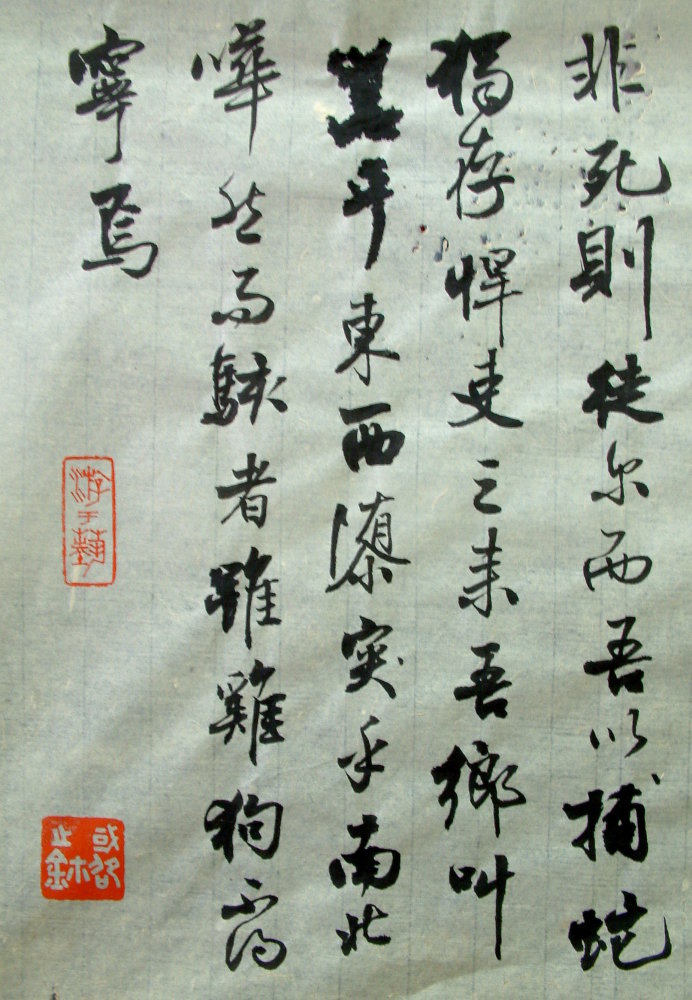 非死則徙尔而吾以捕蛇
獨存悍吏之来吾鄉叫
嚣乎東西隳突乎南北
嘩然而駭者雖雞狗不得
寧焉